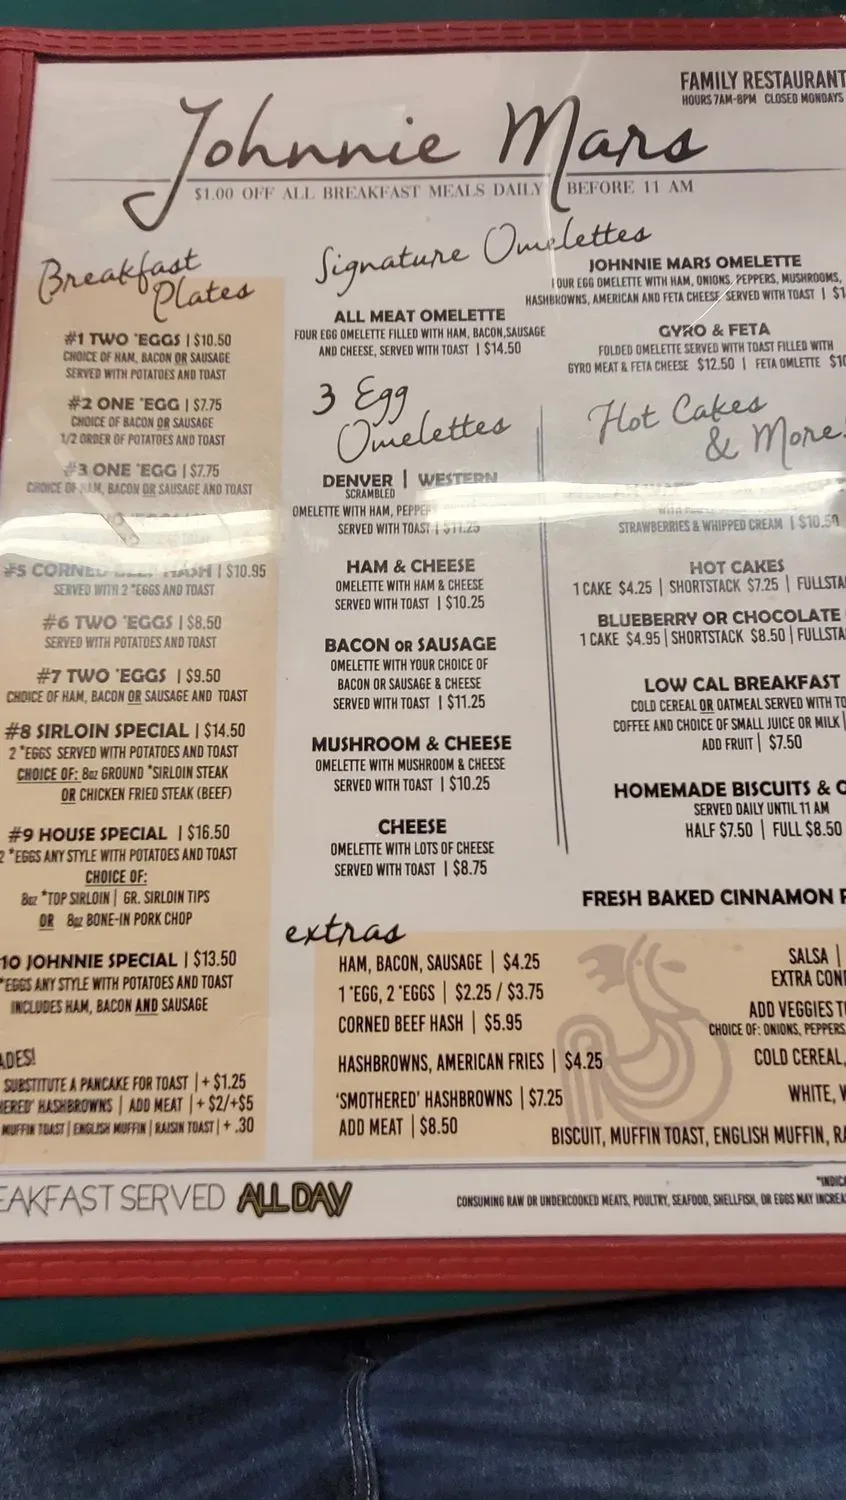 FAMILY RESTAURANT
HOURS 7AM-8PM CLOSED MONDAYS
Johnnie Mars
$1.00 OFF ALL BREAKFAST MEALS DAILY BEFORE 11 AM
Breakfast
Plates
#1 TWO *EGGS | $10.50
CHOICE OF HAM, BACON OR SAUSAGE
SERVED WITH POTATOES AND TOAST
#2 ONE *EGG | $7.75
CHOICE OF BACON OR SAUSAGE
1/2 ORDER OF POTATOES AND TOAST
#3 ONE *EGG | $7.75
CHOICE OF HAM, BACON OR SAUSAGE AND TOAST
#5 CORNED BEEF HASH | $10.95
SERVED WITH 2 *EGGS AND TOAST
#6 TWO *EGGS | $8.50
SERVED WITH POTATOES AND TOAST
#7 TWO *EGGS | $9.50
CHOICE OF HAM, BACON OR SAUSAGE AND TOAST
#8 SIRLOIN SPECIAL | $14.50
2 *EGGS SERVED WITH POTATOES AND TOAST
CHOICE OF: 8oz GROUND *SIRLOIN STEAK
OR CHICKEN FRIED STEAK (BEEF)
#9 HOUSE SPECIAL | $16.50
2 *EGGS ANY STYLE WITH POTATOES AND TOAST
CHOICE OF:
8oz *TOP SIRLOIN | GR. SIRLOIN TIPS
OR 8oz BONE-IN PORK CHOP
10 JOHNNIE SPECIAL | $13.50
*EGGS ANY STYLE WITH POTATOES AND TOAST
INCLUDES HAM, BACON AND SAUSAGE
ADES!
SUBSTITUTE A PANCAKE FOR TOAST | + $1.25
HERED' HASHBROWNS | ADD MEAT | + $2/+$5
MUFFIN TOAST | ENGLISH MUFFIN | RAISIN TOAST | + .30
Signature Omelettes
ALL MEAT OMELETTE
FOUR EGG OMELETTE FILLED WITH HAM, BACON, SAUSAGE
AND CHEESE, SERVED WITH TOAST | $14.50
JOHNNIE MARS OMELETTE
FOUR EGG OMELETTE WITH HAM, ONIONS, PEPPERS, MUSHROOMS,
HASHBROWNS, AMERICAN AND FETA CHEESE, SERVED WITH TOAST | $1
GYRO & FETA
FOLDED OMELETTE SERVED WITH TOAST FILLED WITH
GYRO MEAT & FETA CHEESE $12.50 | FETA OMLETTE $10
3 Egg
Omelettes
DENVER | WESTERN
SCRAMBLED
OMELETTE WITH HAM, PEPPER
SERVED WITH TOAST | $11.25
HAM & CHEESE
OMELETTE WITH HAM & CHEESE
SERVED WITH TOAST | $10.25
BACON OR SAUSAGE
OMELETTE WITH YOUR CHOICE OF
BACON OR SAUSAGE & CHEESE
SERVED WITH TOAST | $11.25
MUSHROOM & CHEESE
OMELETTE WITH MUSHROOM & CHEESE
SERVED WITH TOAST | $10.25
CHEESE
OMELETTE WITH LOTS OF CHEESE
SERVED WITH TOAST | $8.75
Hot Cakes
& More!
STRAWBERRIES & WHIPPED CREAM | $10.50
HOT CAKES
1 CAKE $4.25 | SHORTSTACK $7.25 | FULLSTA
BLUEBERRY OR CHOCOLATE
1 CAKE $4.95 | SHORTSTACK $8.50 | FULLSTA
LOW CAL BREAKFAST
COLD CEREAL OR OATMEAL SERVED WITH TO
COFFEE AND CHOICE OF SMALL JUICE OR MILK |
ADD FRUIT | $7.50
HOMEMADE BISCUITS & G
SERVED DAILY UNTIL 11 AM
HALF $7.50 | FULL $8.50
FRESH BAKED CINNAMON R
extras
HAM, BACON, SAUSAGE | $4.25
1 *EGG, 2 *EGGS | $2.25 / $3.75
CORNED BEEF HASH | $5.95
HASHBROWNS, AMERICAN FRIES | $4.25
'SMOTHERED' HASHBROWNS | $7.25
ADD MEAT | $8.50
SALSA |
EXTRA CON
ADD VEGGIES T
CHOICE OF: ONIONS, PEPPERS
COLD CEREAL,
WHITE, W
BISCUIT, MUFFIN TOAST, ENGLISH MUFFIN, RA
EAKFAST SERVED ALL DAY
*INDICA
CONSUMING RAW OR UNDERCOOKED MEATS, POULTRY, SEAFOOD, SHELLFISH, OR EGGS MAY INCREA